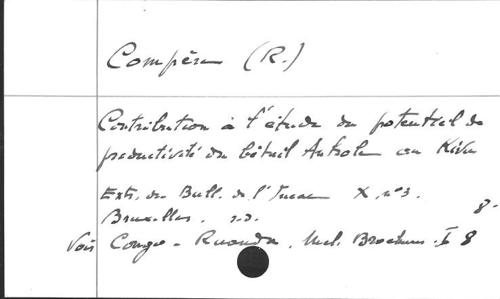 Compère (R.)
Contribution à l'étude du potentiel de
productivité du bétail Ankole au Kivu
Extr. du Bull. de l'Ineac X, n° 3.
Bruxelles. s.d. 8-
Voir Congo - Ruanda. Mel. Brochures. I 8